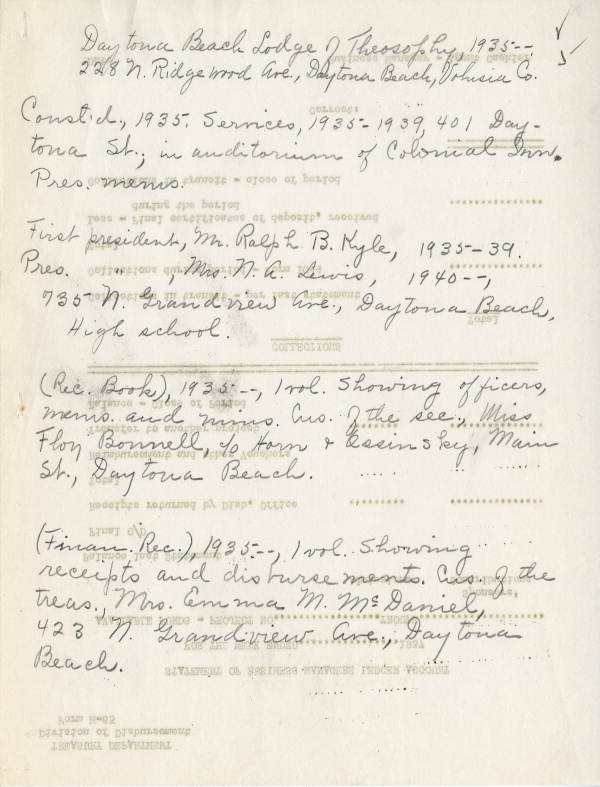 Daytona Beach Lodge of Theosophy, 1935--.
228 N. Ridgewood Ave., Daytona Beach, Volusia Co.
Const'd., 1935. Services, 1935-1939, 401 Day-
tona St.; in auditorium of Colonial Inn.
Pres. mems.
First president, Mr. Ralph B. Kyle, 1935-39.
Pres. " , Mrs. N. A. Lewis, 1940--,
735 N. Grandview Ave., Daytona Beach,
High school.
(Rec. Book), 1935--, 1 vol. Showing officers,
mems. and mins. Cus. of the sec., Miss
Floy Bonnell, c/o Horn & Essinsky, Main
St., Daytona Beach.
(Finan. Rec.), 1935--, 1 vol. Showing
receipts and disbursements. Cus. of the
treas., Mrs. Emma M. McDaniel,
423 N. Grandview Ave., Daytona
Beach.
STATEMENT OF BUSINESS MANAGERS LEDGER ACCOUNT
Form M-63
Division of Disbursement
TREASURY DEPARTMENT